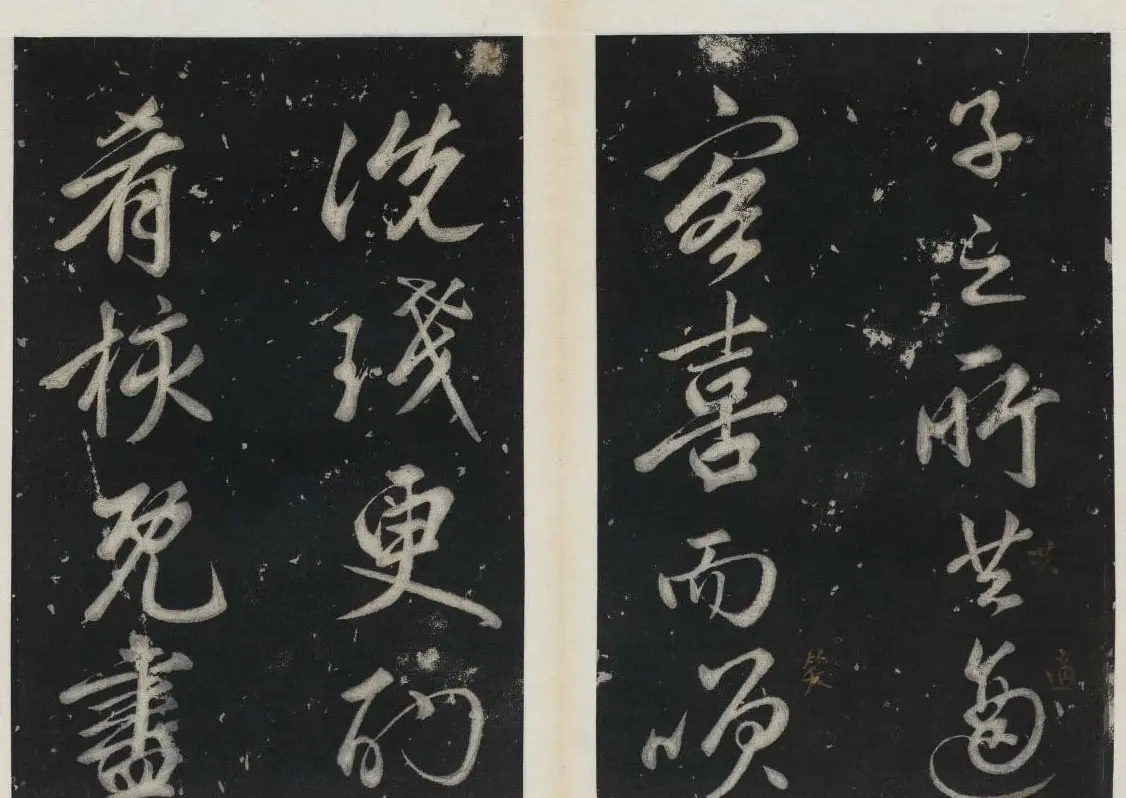 子之所共適
共
適
客喜而咲
笑
洗琖更酌
肴核既盡